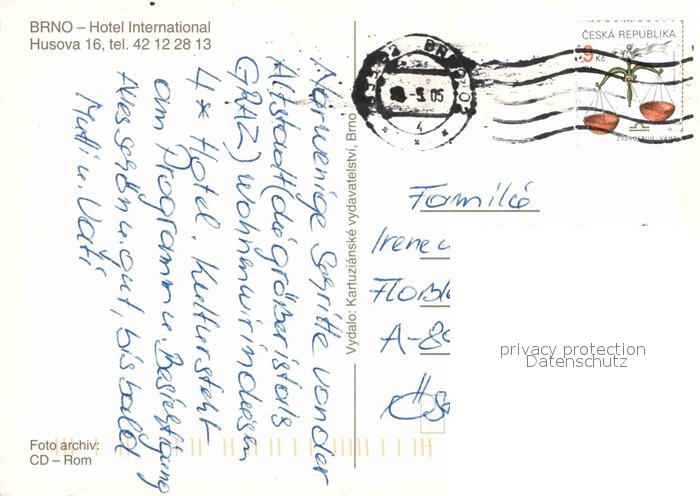 BRNO – Hotel International
Husova 16, tel. 42 12 28 13
Nur wenige Schritte von der
Altstadt (die größer ist als
GRAZ) wohnen wir in diesem
4* Hotel. Kultur steht
am Programm u. Besichtigung
Alles schön u. gut, bis bald
Mutti u. Vati
Foto archiv:
CD – Rom
Vydalo: Kartuziánské vydavatelství, Brno
BRNO
05
4
ČESKÁ REPUBLIKA
9 Kč
ZVĚROKRUH - VÁHY
Familie
Irene u
A-8
Ös
privacy protection
Datenschutz